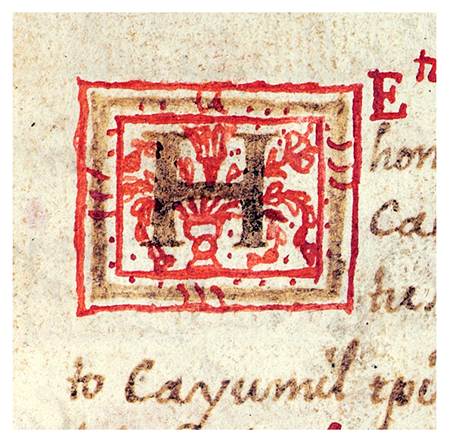 HE
hon
Ca
tu
to Cayumil